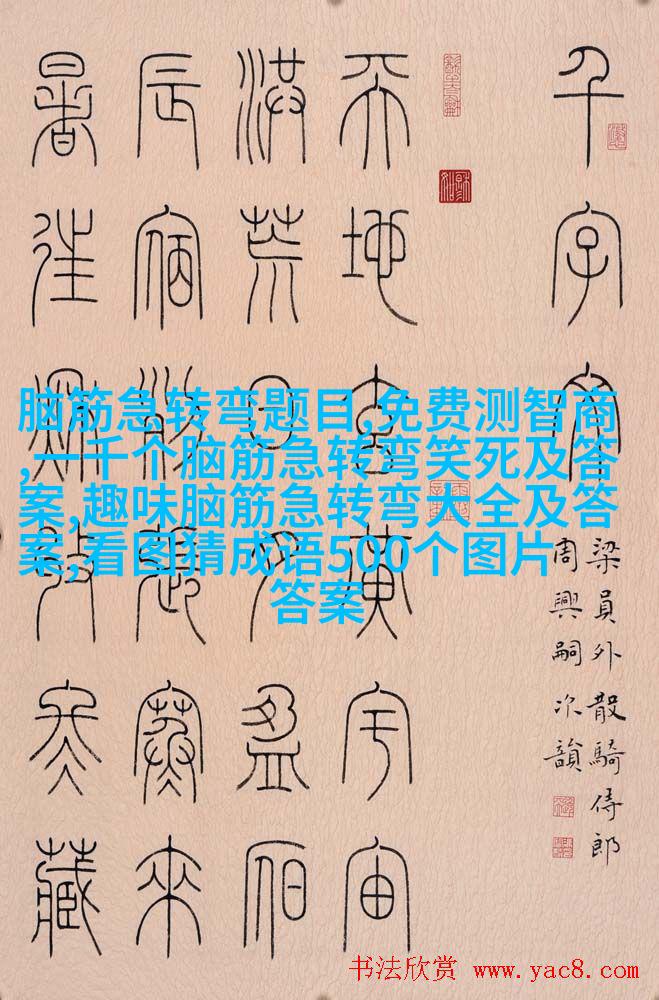 千字文
梁員外散騎侍郎
周興嗣次韻
天地玄黄宇宙
洪荒日月盈昃
辰宿列張寒來
暑往秋收冬藏
脑筋急转弯题目,免费测智商
,一千个脑筋急转弯笑死及答
案,趣味脑筋急转弯大全及答
案,看图猜成语500个图片
答案
书法欣赏 www.yac8.com